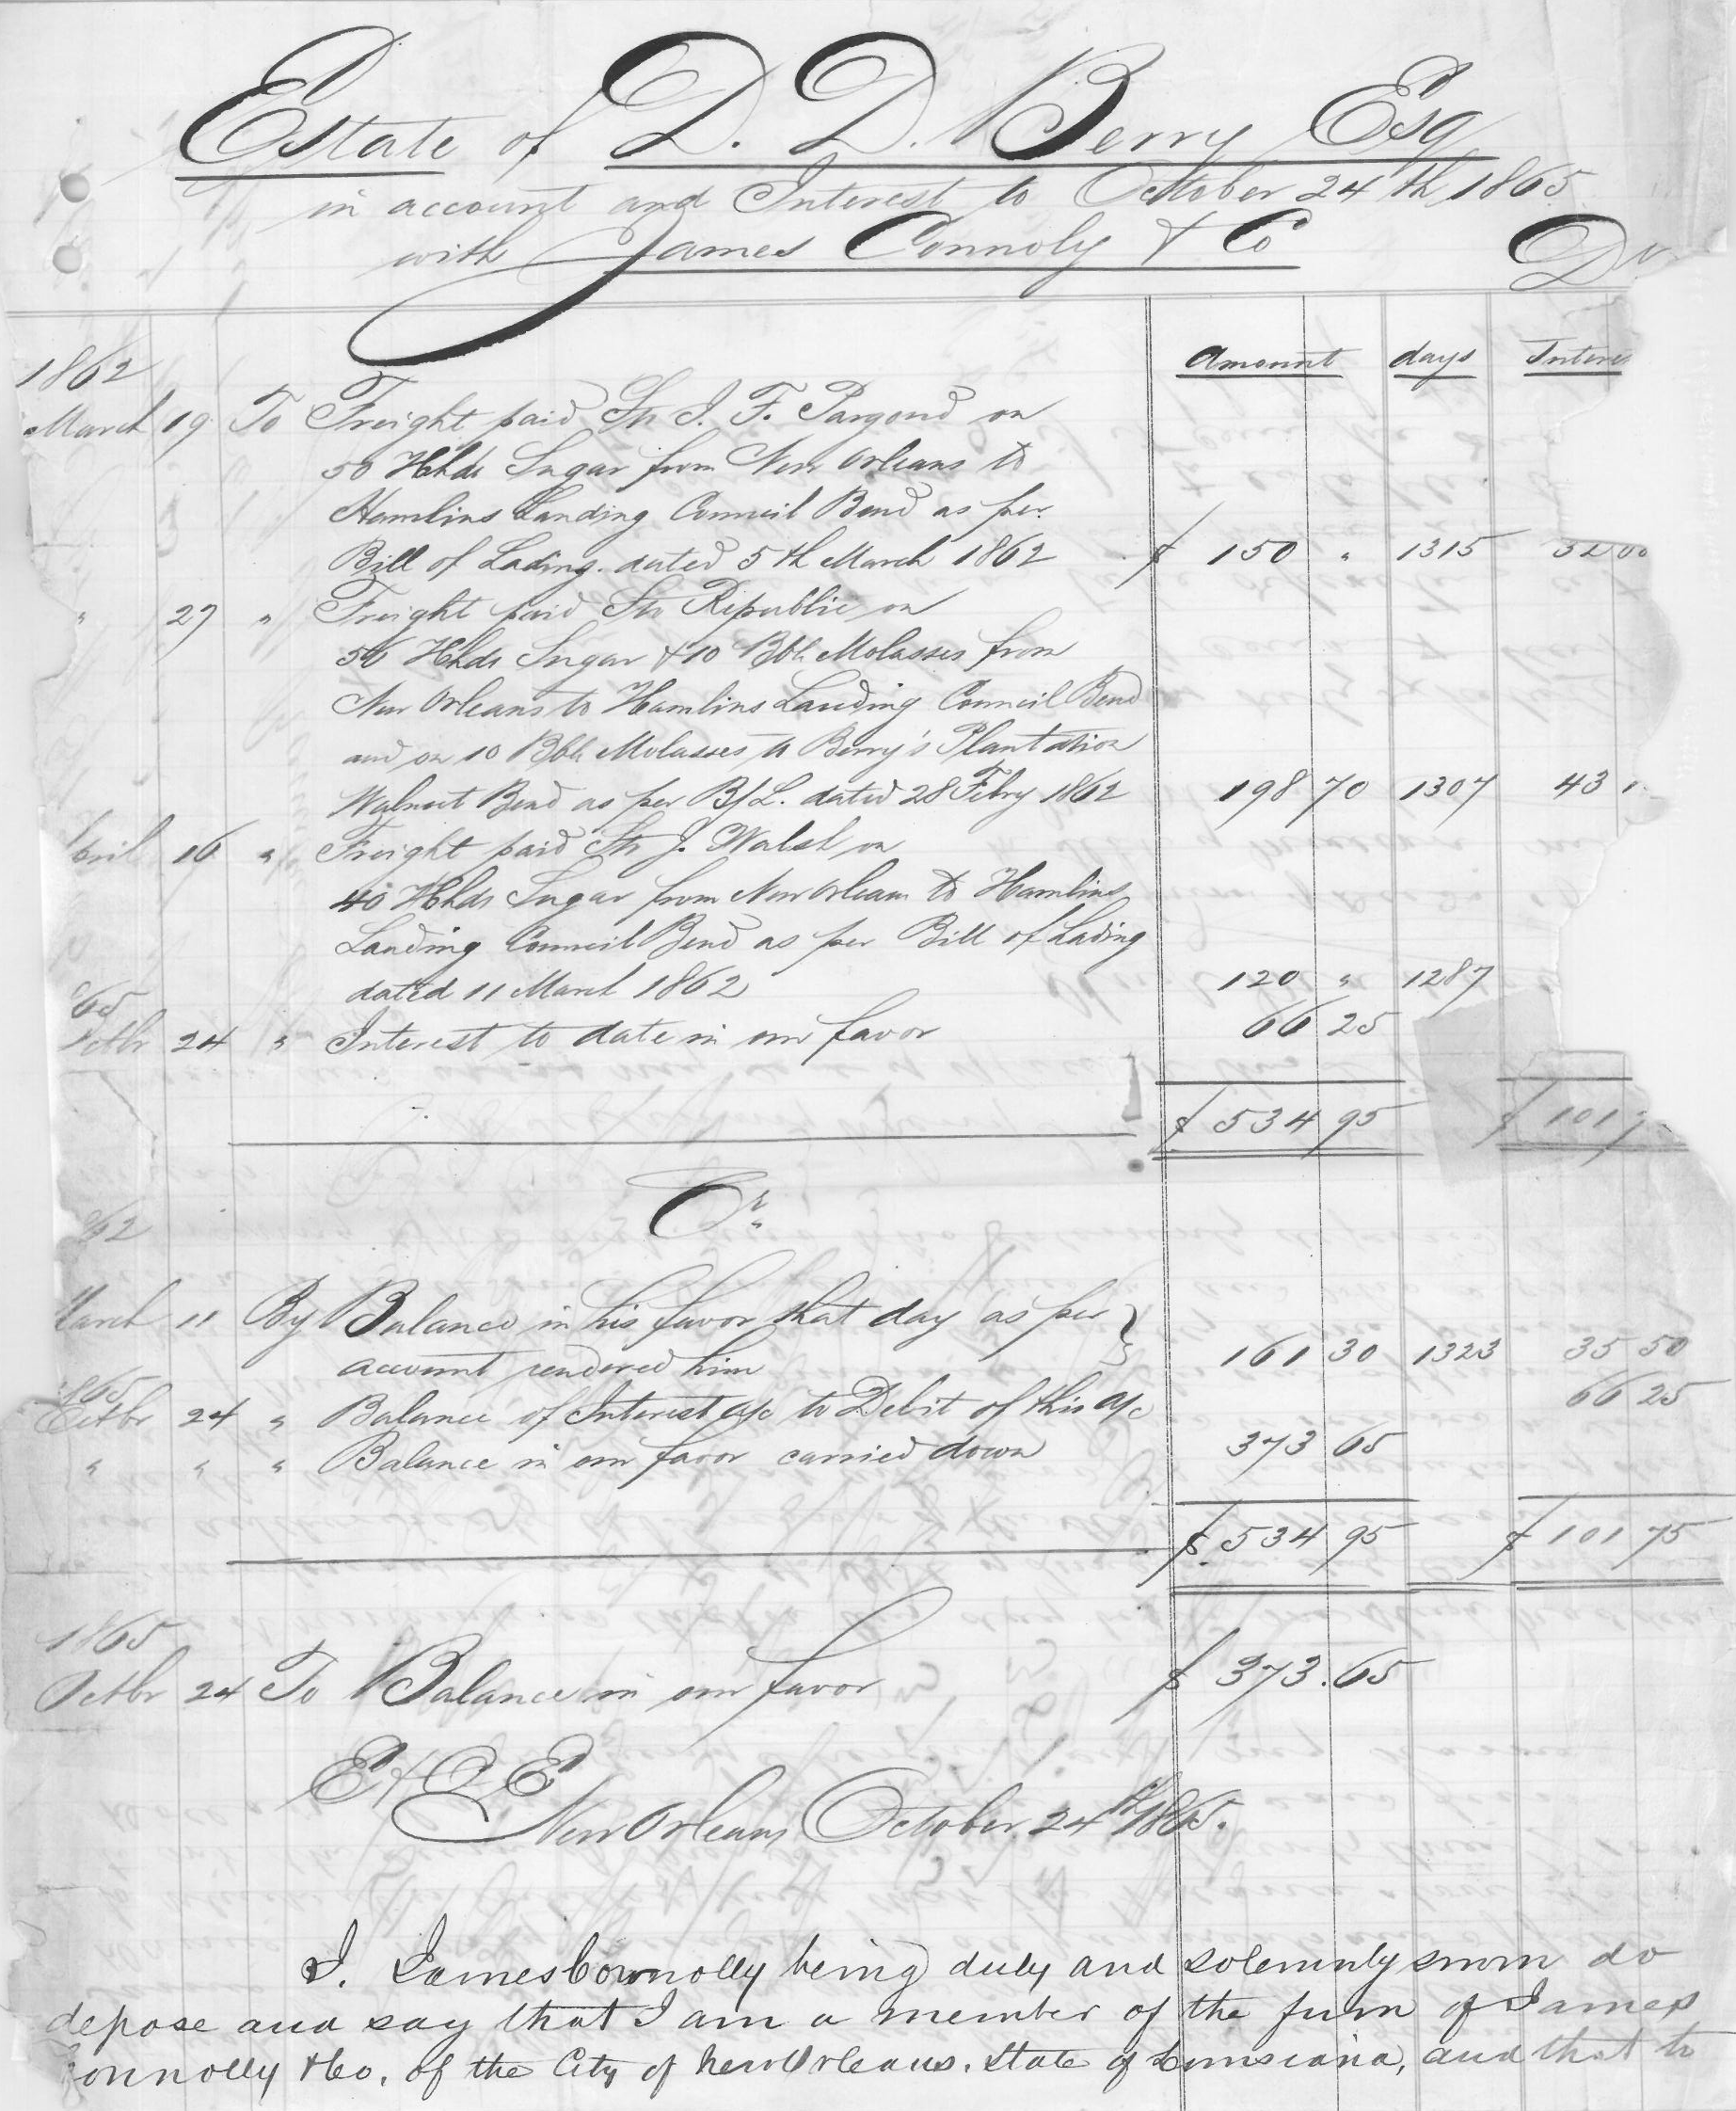 Estate of D. D. Berry Esq
in account and Interest to October 24th 1865
with James Connoly & Co Dr
Amount days Interes
1862
March 19 To Freight paid Str I. F. Pargoud on
50 Hhds Sugar from New Orleans to
Hamlins Landing Council Bend as per
Bill of Lading. dated 5th March 1862 $ 150 " 1315 32 00
" 27 " Freight paid Str Republic on
56 Hhds Sugar & 10 Bbls Molasses from
New Orleans to Hamlins Landing Council Bend
and on 10 Bbls Molasses to Berry's Plantation
Walnut Bend as per B/L. dated 28 Febry 1862 198 70 1307 43
April 16 " Freight paid Str J. Walsh on
40 Hhds Sugar from New Orleans to Hamlins
Landing Council Bend as per Bill of Lading
dated 11 March 1862 120 " 1287
65
Octbr 24 " Interest to date in our favor 66 25
$ 534 95 $ 101 7
Cr.
62
March 11 By Balance in his favor that day as per
account rendered him 161 30 1323 35 50
1865
Octbr 24 " Balance of Interest a/c to Debit of this a/c 66 25
" " " Balance in our favor carried down 373 65
$ 534 95 $ 101 75
1865
Octbr 24 To Balance in our favor $ 373.65
E & O E
New Orleans October 24th 1865.
I. James Connolly being duly and solemnly sworn do
depose and say that I am a member of the firm of James
Connolly & Co. of the City of New Orleans. State of Louisiana, and that to